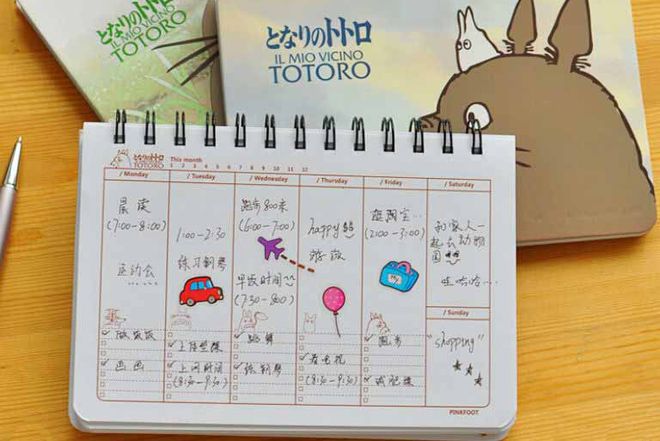 となりのトトロ
となりのトトロ
IL MIO VICINO
TOTORO
IL MIO VICINO
TOTORO
となりのトトロ
TOTORO
This month
1 2 3 4 5 6 7 8 9 10 11 12
/ Monday
/ Tuesday
/ Wednesday
/ Thursday
/ Friday
/ Saturday
晨读
(7:00-8:00)
运动会
……
做饭饭
画画
1:00-2:30
练习钢琴
上网时间
(8:30-9:30)
跑步800米
(6:00-7:00)
早饭时间
(7:30-8:00)
跳舞
练钢琴
happy
游放
看电视
(8:30-9:30)
逛淘宝…
(2:00-3:00)
跑步
减肥操
和家人一
起去动物
园
哇哈哈…
/ Sunday
"shopping"
PINKFOOT